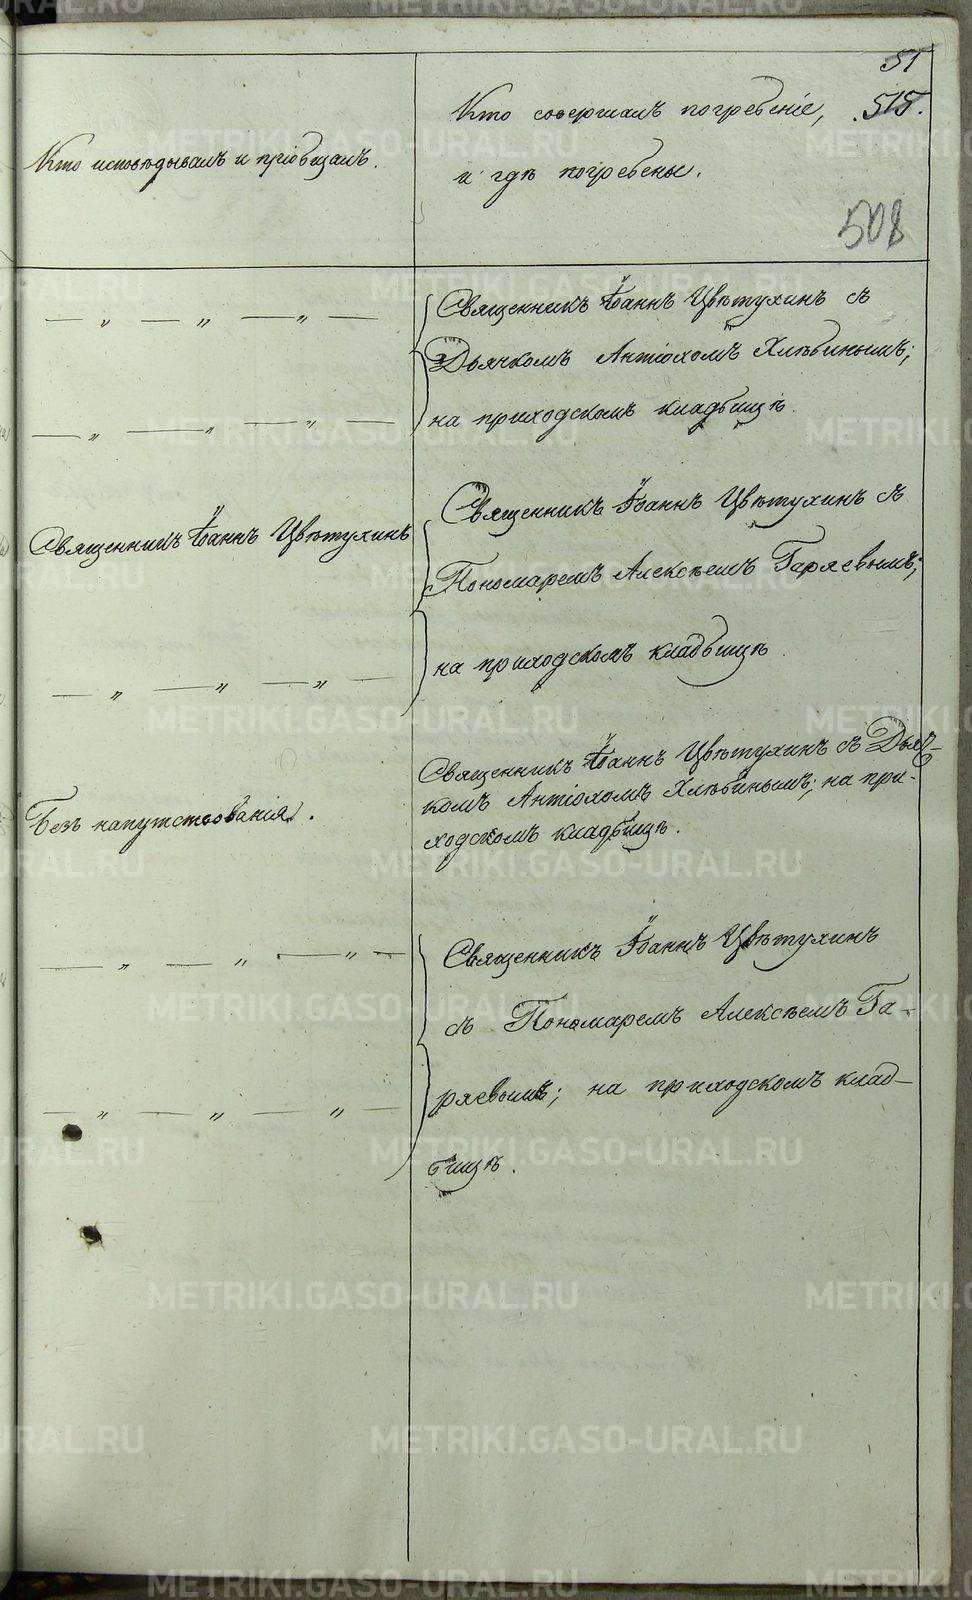 51
Кто исповѣдывалъ и пріобщалъ.
Кто совершалъ погребеніе,
515.
и гдѣ погребены.
508
— „ — „ — „ —
Священникъ Іоаннъ Цвѣтухинъ съ
Дьячкомъ Антіохомъ Хлѣбинымъ;
— „ — „ — „ —
на приходскомъ кладбищѣ.
Священникъ Іоаннъ Цвѣтухинъ
Священникъ Іоаннъ Цвѣтухинъ съ
Пономаремъ Алексѣемъ Гаряевымъ;
— „ — „ — „ —
на приходскомъ кладбищѣ.
Безъ напутствованія.
Священникъ Іоаннъ Цвѣтухинъ съ Дьяч-
комъ Антіохомъ Хлѣбинымъ; на при-
ходскомъ кладбищѣ.
— „ — „ — „ —
Священникъ Іоаннъ Цвѣтухинъ
съ Пономаремъ Алексѣемъ Га-
— „ — „ — „ —
ряевымъ; на приходскомъ клад-
бищѣ.
METRIKI.GASO-URAL.RU